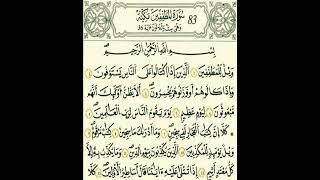 سُورَةُ الْمُطَفِّفِينَ مَكِّيَّة
83
بِسْمِ اللَّهِ الرَّحْمَٰنِ الرَّحِيمِ
وَيْلٌ لِلْمُطَفِّفِينَ ۝ الَّذِينَ إِذَا اكْتَالُوا عَلَى النَّاسِ يَسْتَوْفُونَ ۝
وَإِذَا كَالُوهُمْ أَوْ وَزَنُوهُمْ يُخْسِرُونَ ۝ أَلَا يَظُنُّ أُولَٰئِكَ أَنَّهُمْ
مَبْعُوثُونَ ۝ لِيَوْمٍ عَظِيمٍ ۝ يَوْمَ يَقُومُ النَّاسُ لِرَبِّ الْعَالَمِينَ ۝
كَلَّا إِنَّ كِتَابَ الْفُجَّارِ لَفِي سِجِّينٍ ۝ وَمَا أَدْرَاكَ مَا سِجِّينٌ ۝ كِتَابٌ مَرْقُومٌ ۝
وَيْلٌ يَوْمَئِذٍ لِلْمُكَذِّبِينَ ۝ الَّذِينَ يُكَذِّبُونَ بِيَوْمِ الدِّينِ ۝ وَمَا يُكَذِّبُ بِهِ إِلَّا
كُلُّ مُعْتَدٍ أَثِيمٍ ۝ إِذَا تُتْلَىٰ عَلَيْهِ آيَاتُنَا قَالَ أَسَاطِيرُ الْأَوَّلِينَ ۝ كَلَّا